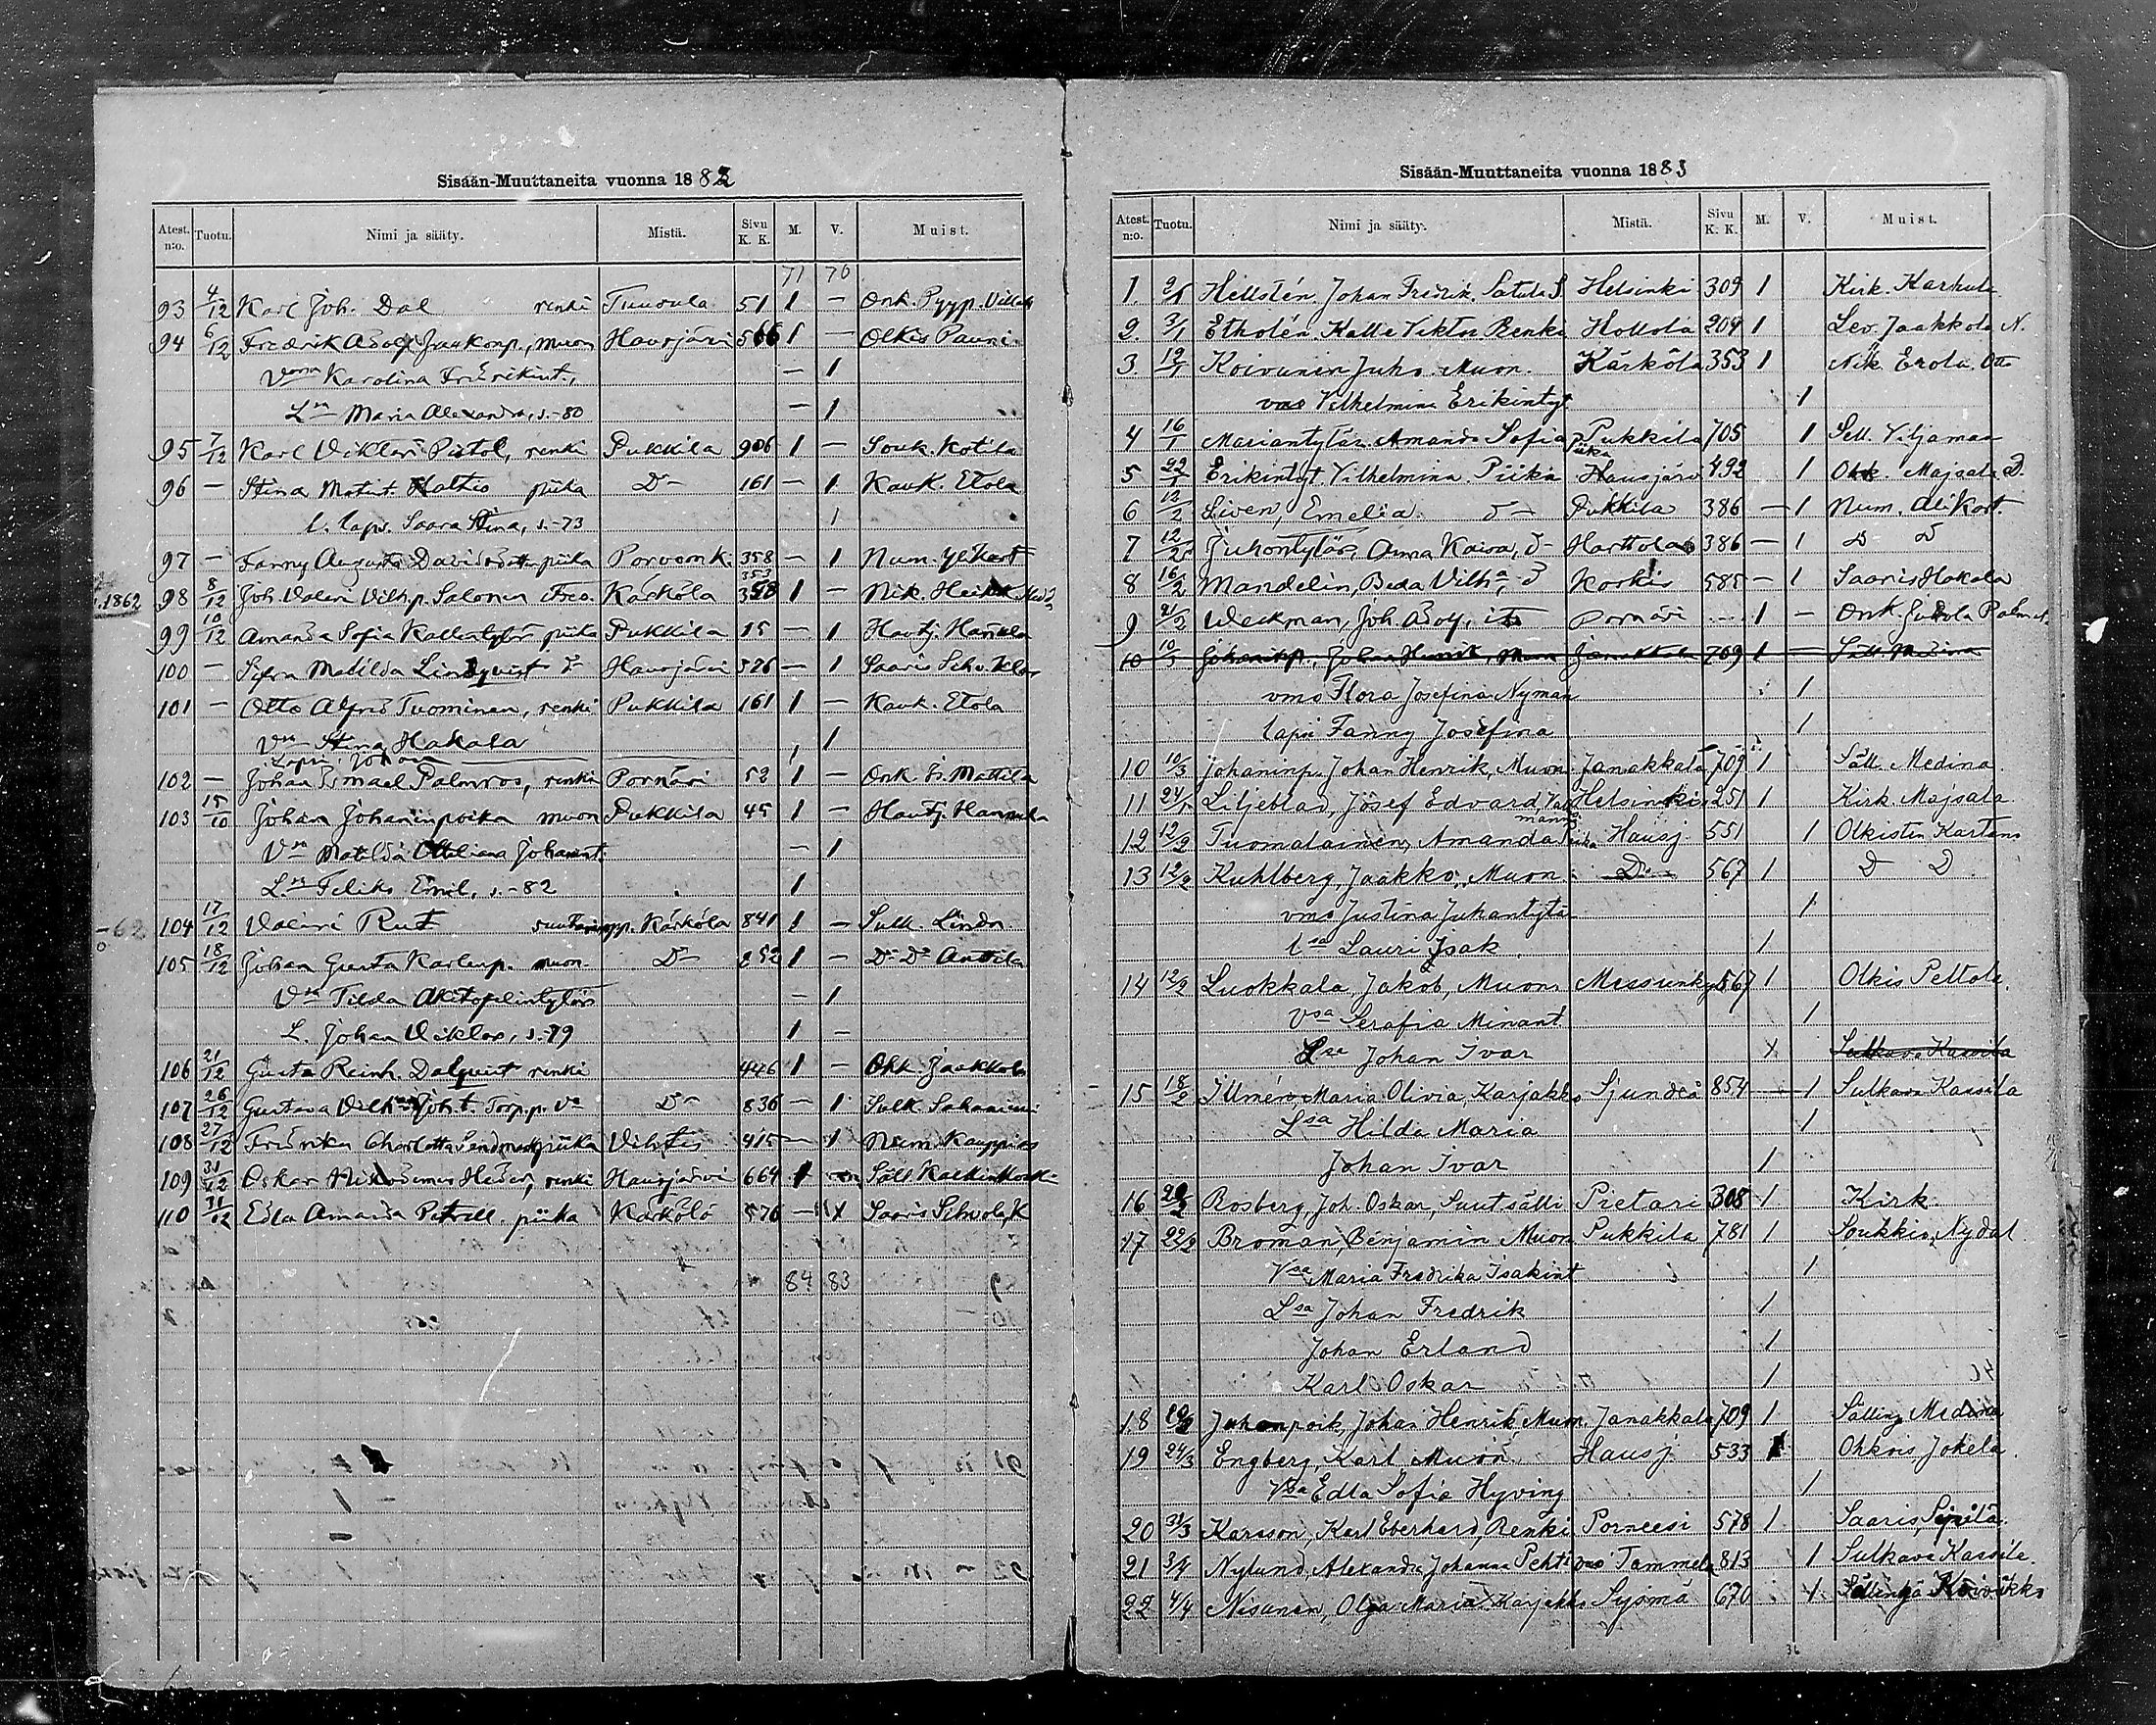 Sisään-Muuttaneita vuonna 1882
Atest. n:o. Tuotu. Nimi ja sääty. Mistä. Sivu K. K. M. V. Muist.
71 70
93 4/12 Karl Joh. Dal renki Tuusula 51 1 — Onk. Pyyp.
94 6/12 Fredrik Adolf muon Hausjärvi 566 1 — Olkis Pauni
Karolina — 1
Maria Alexandra, s.-80 — 1
95 7/12 Karl Viktari Pistol, renki Pukkila 906 1 — Souk. Kotila
96 — Stina Matint. piika D— 161 — 1 Kauk. Etola
l. laps. Saara Stina, s.-73 1
97 — Fanny Augusta Davidsdotter piika Porvoonk. 358 — 1 Num.
1862 98 8/12 Joh. Valeri Vilhp. Salonen Kärköla 353 1 — Nik.
99 10/12 Amanda Sofia Kallentytär piika Pukkila 15 — 1 Hautj. Hannula
100 — Matilda Lindqvist D— Hausjärvi 526 — 1 Saaris
101 — Otto Alfred Tuominen, renki Pukkila 161 1 — Kauk. Etola
Vmo Stina Hakala 1
Lapsi Johan
102 — Johan Ismael Palmroos, renki Pornäri 52 1 — Onk Is. Mattila
103 15/10 Johan Johaninpoika muon Pukkila 45 1 — Hautj. Hannula
Matilda Johanint. — 1
Feliks Emil, s.-82 1
-62 104 17/12 Valeri Rut Kärköla 841 1 — Sulk.
105 18/12 Johan Gusta Karlenp. muon D— 252 1 — D— D— Anttila
Tilda — 1
L. Johan Viktor, s.-79 1 —
106 21/12 Gusta Reinh. Dalqvist renki 446 1 — Ohk. Jaakkola
107 26/12 Gustava D— 836 — 1 Sulk.
108 27/12 Fredrika Charlotta piika Vihtis 415 — 1 Num. Kauppias
109 31/12 Oskar renki Hausjärvi 664 1 Säll.
110 31/12 Edla Amanda piika Kärkölä 576 — 1 Saaris
84 83
Sisään-Muuttaneita vuonna 1883
Atest. n:o. Tuotu. Nimi ja sääty. Mistä. Sivu K. K. M. V. Muist.
1. 2/1 Hellstén, Johan Fredrik, Satula S Helsinki 309 1 Kirk. Karhula
2. 3/1 Etholén, Kalle Viktor Renki Hollola 209 1 Lev. Jaakkola N.
3. 12/1 Koivunen Juho Muon. Kärköla 353 1 Nik. Erola Otto
vmo Vilhelmina Erikintyt 1
4 16/1 Mariantytär Amanda Sofia piika Pukkila 705 1 Sell. Viljamaa
5 22/1 Erikintyt. Vilhelmina Piika Hausjärvi 492 1 Ohk. Majsala D.
6 12/2 Siven, Emelia. D— Pukkila 386 — 1 Num. Alikart.
7 12/2 Juhontytär, Anna Kaisa, D— Harttola 386 — 1 D D
8 16/2 Mandelin, Beda Vilh:a, D Koskis 585 — 1 Saaris Hakala
9 21/2 Weckman, Joh. Adolf, its Pornäri 1 — Onk.
10 10/3 Johaninp., Johan Henrik, Muon Janakkala 709 1 — Säll. Medina
vmo Flora Josefina Nyman 1
lapsi Fanny Josefina 1
10 10/3 Johaninp. Johan Henrik, Muon Janakkala 709 1 Säll. Medina
11 24/1 Liljeblad, Josef Edvard, Helsinki 251 1 Kirk. Majsala.
12 12/2 Tuomalainen, Amanda Piika Hausj. 551 1 Olkisten Kartano
13 12/2 Kuhlberg, Jaakko, Muon. D— 567 1 D D
vmo Justina Juhantytär 1
lsa Lauri Isak 1
14 12/2 Luokkala, Jakob, Muon. 567 1 Olkis Peltola.
Vsa Serafia Minant. 1
Lse Johan Ivar 1 Sulkava Kassila
15 18/2 Illmén Maria Olivia, Karjakko Sjundeå 854 — 1 Sulkava Kassila
Lsa Hilda Maria 1
Johan Ivar 1
16 Rosberg, Joh. Oskar, Suutsälli Pietari 308 1 Kirk.
17 22/2 Broman, Benjamin Muon Pukkila 781 1 Soukkio, Nydal
Vsa Maria Fredrika Isakint 1
Lsa Johan Fredrik 1
Johan Erland 1
Karl Oskar 1
18 Juhanpoik, Johan Henrik, Muon. Janakkala 709 1 Sälling Medina
19 24/3 Engberg, Karl Muon. Hausj. 533 1 Ohkois, Jokela
Vsa Edla Sofia Hyving 1
20 31/3 Karsson, Karl Eberhard, Renki Porneesi 578 1 Saaris, Sipilä.
21 3/4 Nylund Alexandra Johanna Tammela 813 1 Sulkava Kassila.
22 4/4 Nisunen, Olga Maria Karjakko Sysmä 670 1 Sällinkä Koivikko
36